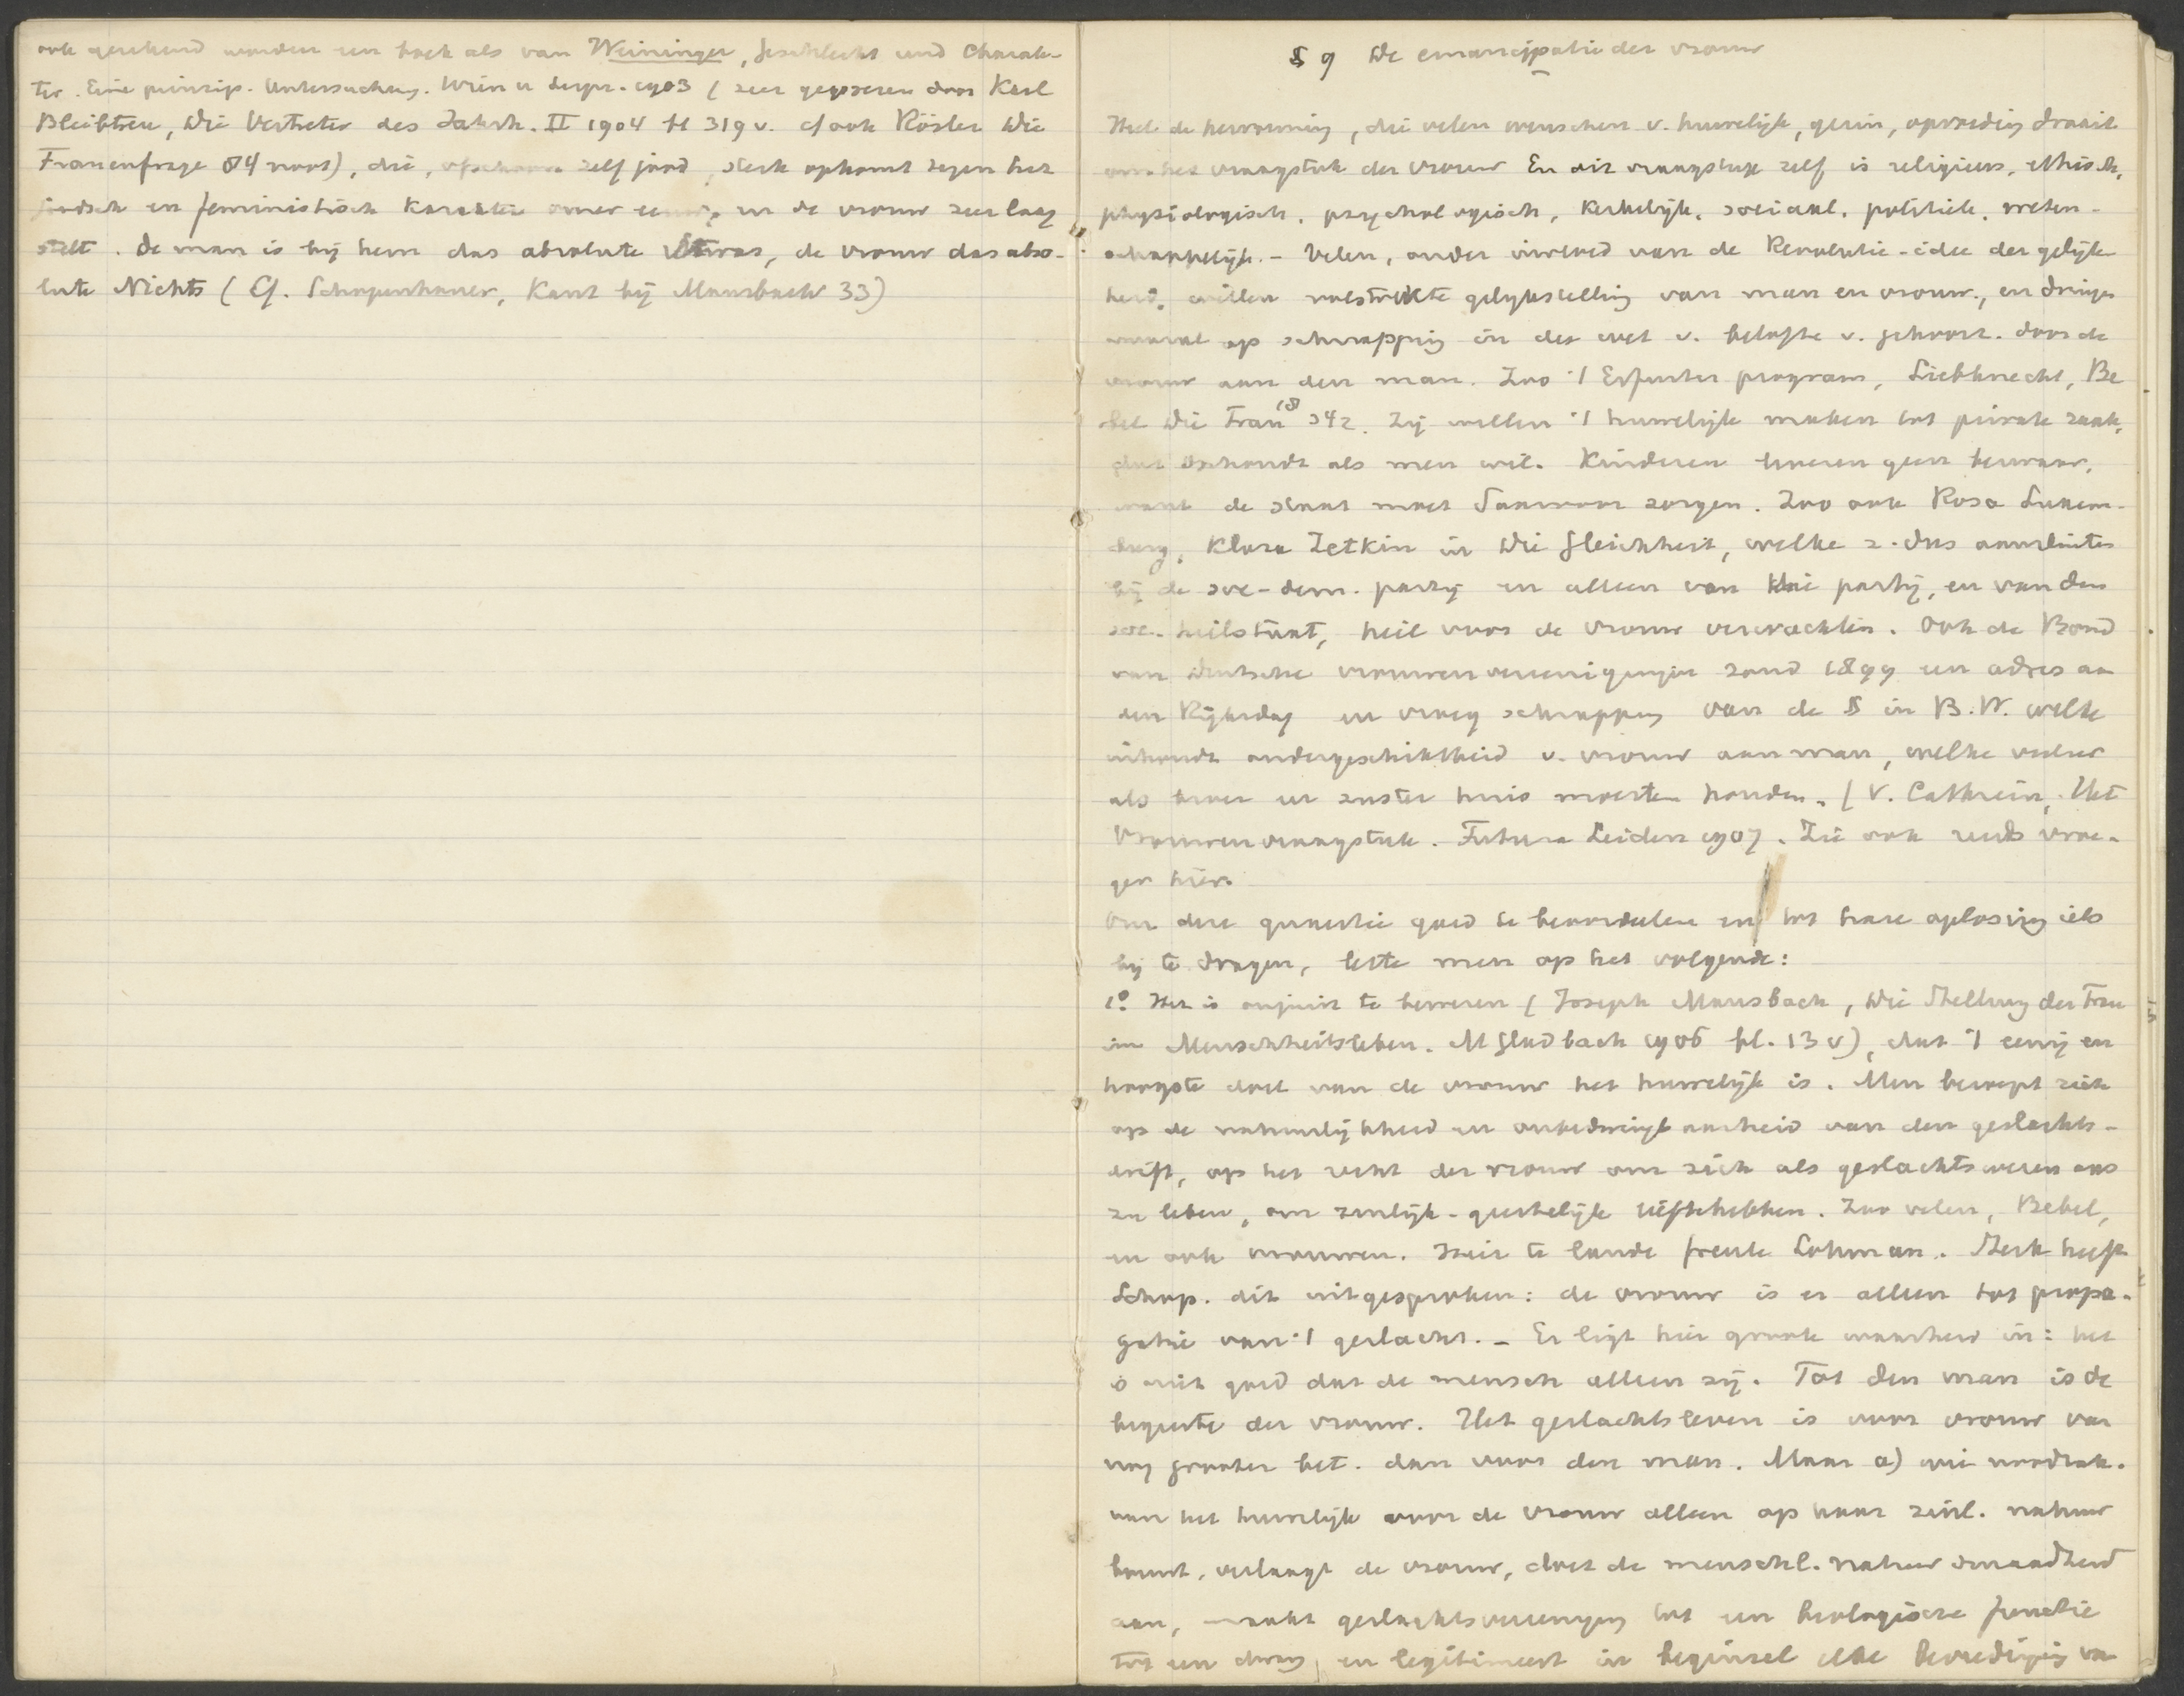 ook gerekend worden een boek als van Weininger, Geschlecht und Charak-
ter. Eine prinzip. Untersuchung. Wien u Leipz. 1903 (zeer geprezen door Karl
Bleibtreu, Die Vertreter des Jahrh. II 1904 bl 319 v. cf ook Rösler Die
Frauenfrage 84 noot), die, ofschoon zelf jood, sterk opkomt tegen het
joodsch en feministisch karakter onzer eeuw, en de vrouw zeer laag
stelt. De man is bij hem das absolute Etwas, de vrouw das abso-
lute Nichts (Cf. Schopenhauer, Kant bij Mausbach 33)
§ 9 De emancipatie der vrouw
Heel de hervorming, die velen wenschen v. huwelijk, gezin, opvoeding draait
om het vraagstuk der vrouw En dit vraagstuk zelf is religieus, ethisch,
physiologisch, psychologisch, kerkelijk, sociaal, politiek, weten-
schappelijk. - Velen, onder invloed van de Revolutie-idee der gelijk-
heid, willen volstrekte gelijkstelling van man en vrouw, en dringen
overal op schrapping in der wet v. belofte v. gehoorz. door de
vrouw aan den man. Zoo 't Erfurter program, Liebknecht, Be
bel Die Frau 18 342. Zij willen 't huwelijk maken tot private zaak,
dat ophoudt als men wil. Kinderen leveren geen bezwaar,
want de staat moet daarvoor zorgen. Zoo ook Rosa Luxem-
burg, Klara Zetkin in Die Gleichheit, welke z. dus aansluiten
bij de soc-dem. partij en alleen van die partij, en van den
soc. heilstaat, heil voor de vrouw verwachten. Ook de Bond
van Duitsche vrouwenvereenigingen zond 1899 een adres aan
den Rijksdag en vroeg schrapping van de § in B.W. welke
inhoudt ondergeschiktheid v. vrouw aan man, welke veeleer
als broer en zuster huis moesten houden. (V. Cathrein, Het
Vrouwenvraagstuk. Futura Leiden 1907. Zie ook reeds vroe-
ger hier.
Om deze quaestie goed te beoordeelen en tot hare oplossing iets
bij te dragen, lette men op het volgende:
1° Het is onjuist te beweren (Joseph Mausbach, Die Stellung der Frau
im Menschheitsleben. M Gladbach 1906 bl. 13 v), dat 't eenig en
hoogste doel van de vrouw het huwelijk is. Men beroept zich
op de natuurlijkheid en onbedwingbaarheid van den geslachts-
drift, op het recht der vrouw om zich als geslachtswezen aus
zu leben, om zinlijk-geestelijk lief te hebben. Zoo velen, Bebel,
en ook vrouwen. Hier te lande freule Lohman. Sterk heeft
Schop. dit uitgesproken: de vrouw is er alleen tot propa-
gatie van 't geslacht. - Er ligt hier groote waarheid in: het
is niet goed dat de mensch alleen zij. Tot den man is de
begeerte der vrouw. Het geslachtsleven is voor vrouw van
nog grooter bet. dan voor den man. Maar a) wie noodzak.
van het huwelijk voor de vrouw alleen op haar zinl. natuur
bouwt, verlaagt de vrouw, doet de menschl. natuur smaadheid
aan, maakt geslachtsvereeniging tot een biologische functie
tot een dwang, en legitimeert in beginsel elke bevrediging van